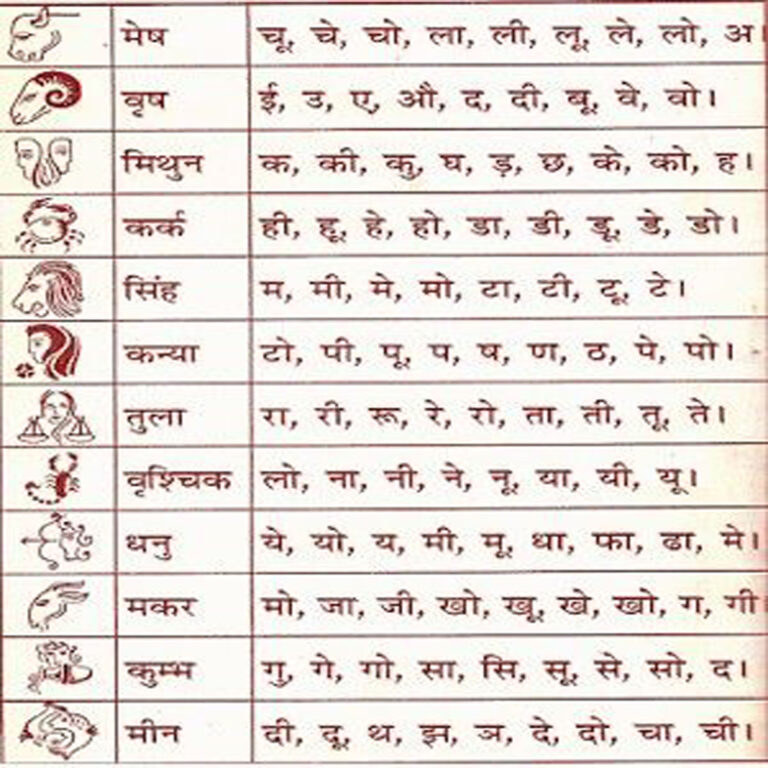 मेष चू, चे, चो, ला, ली, लू, ले, लो, अ।
वृष ई, उ, ए, औ, द, दी, बू, वे, वो।
मिथुन क, की, कु, घ, ड़, छ, के, को, ह।
कर्क ही, हू, हे, हो, डा, डी, डू, डे, डो।
सिंह म, मी, मे, मो, टा, टी, टू, टे।
कन्या टो, पी, पू, प, ष, ण, ठ, पे, पो।
तुला रा, री, रू, रे, रो, ता, ती, तू, ते।
वृश्चिक लो, ना, नी, ने, नू, या, यी, यू।
धनु ये, यो, य, मी, मू, धा, फा, ढा, मे।
मकर मो, जा, जी, खो, खू, खे, खो, ग, गी
कुम्भ गु, गे, गो, सा, सि, सू, से, सो, द।
मीन दी, दू, थ, झ, ञ, दे, दो, चा, ची।